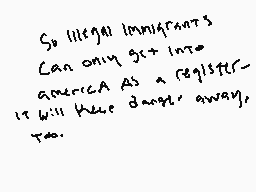 So Illegal Immigrants
can only get into
america as a register-
it will there dangle away,
too.